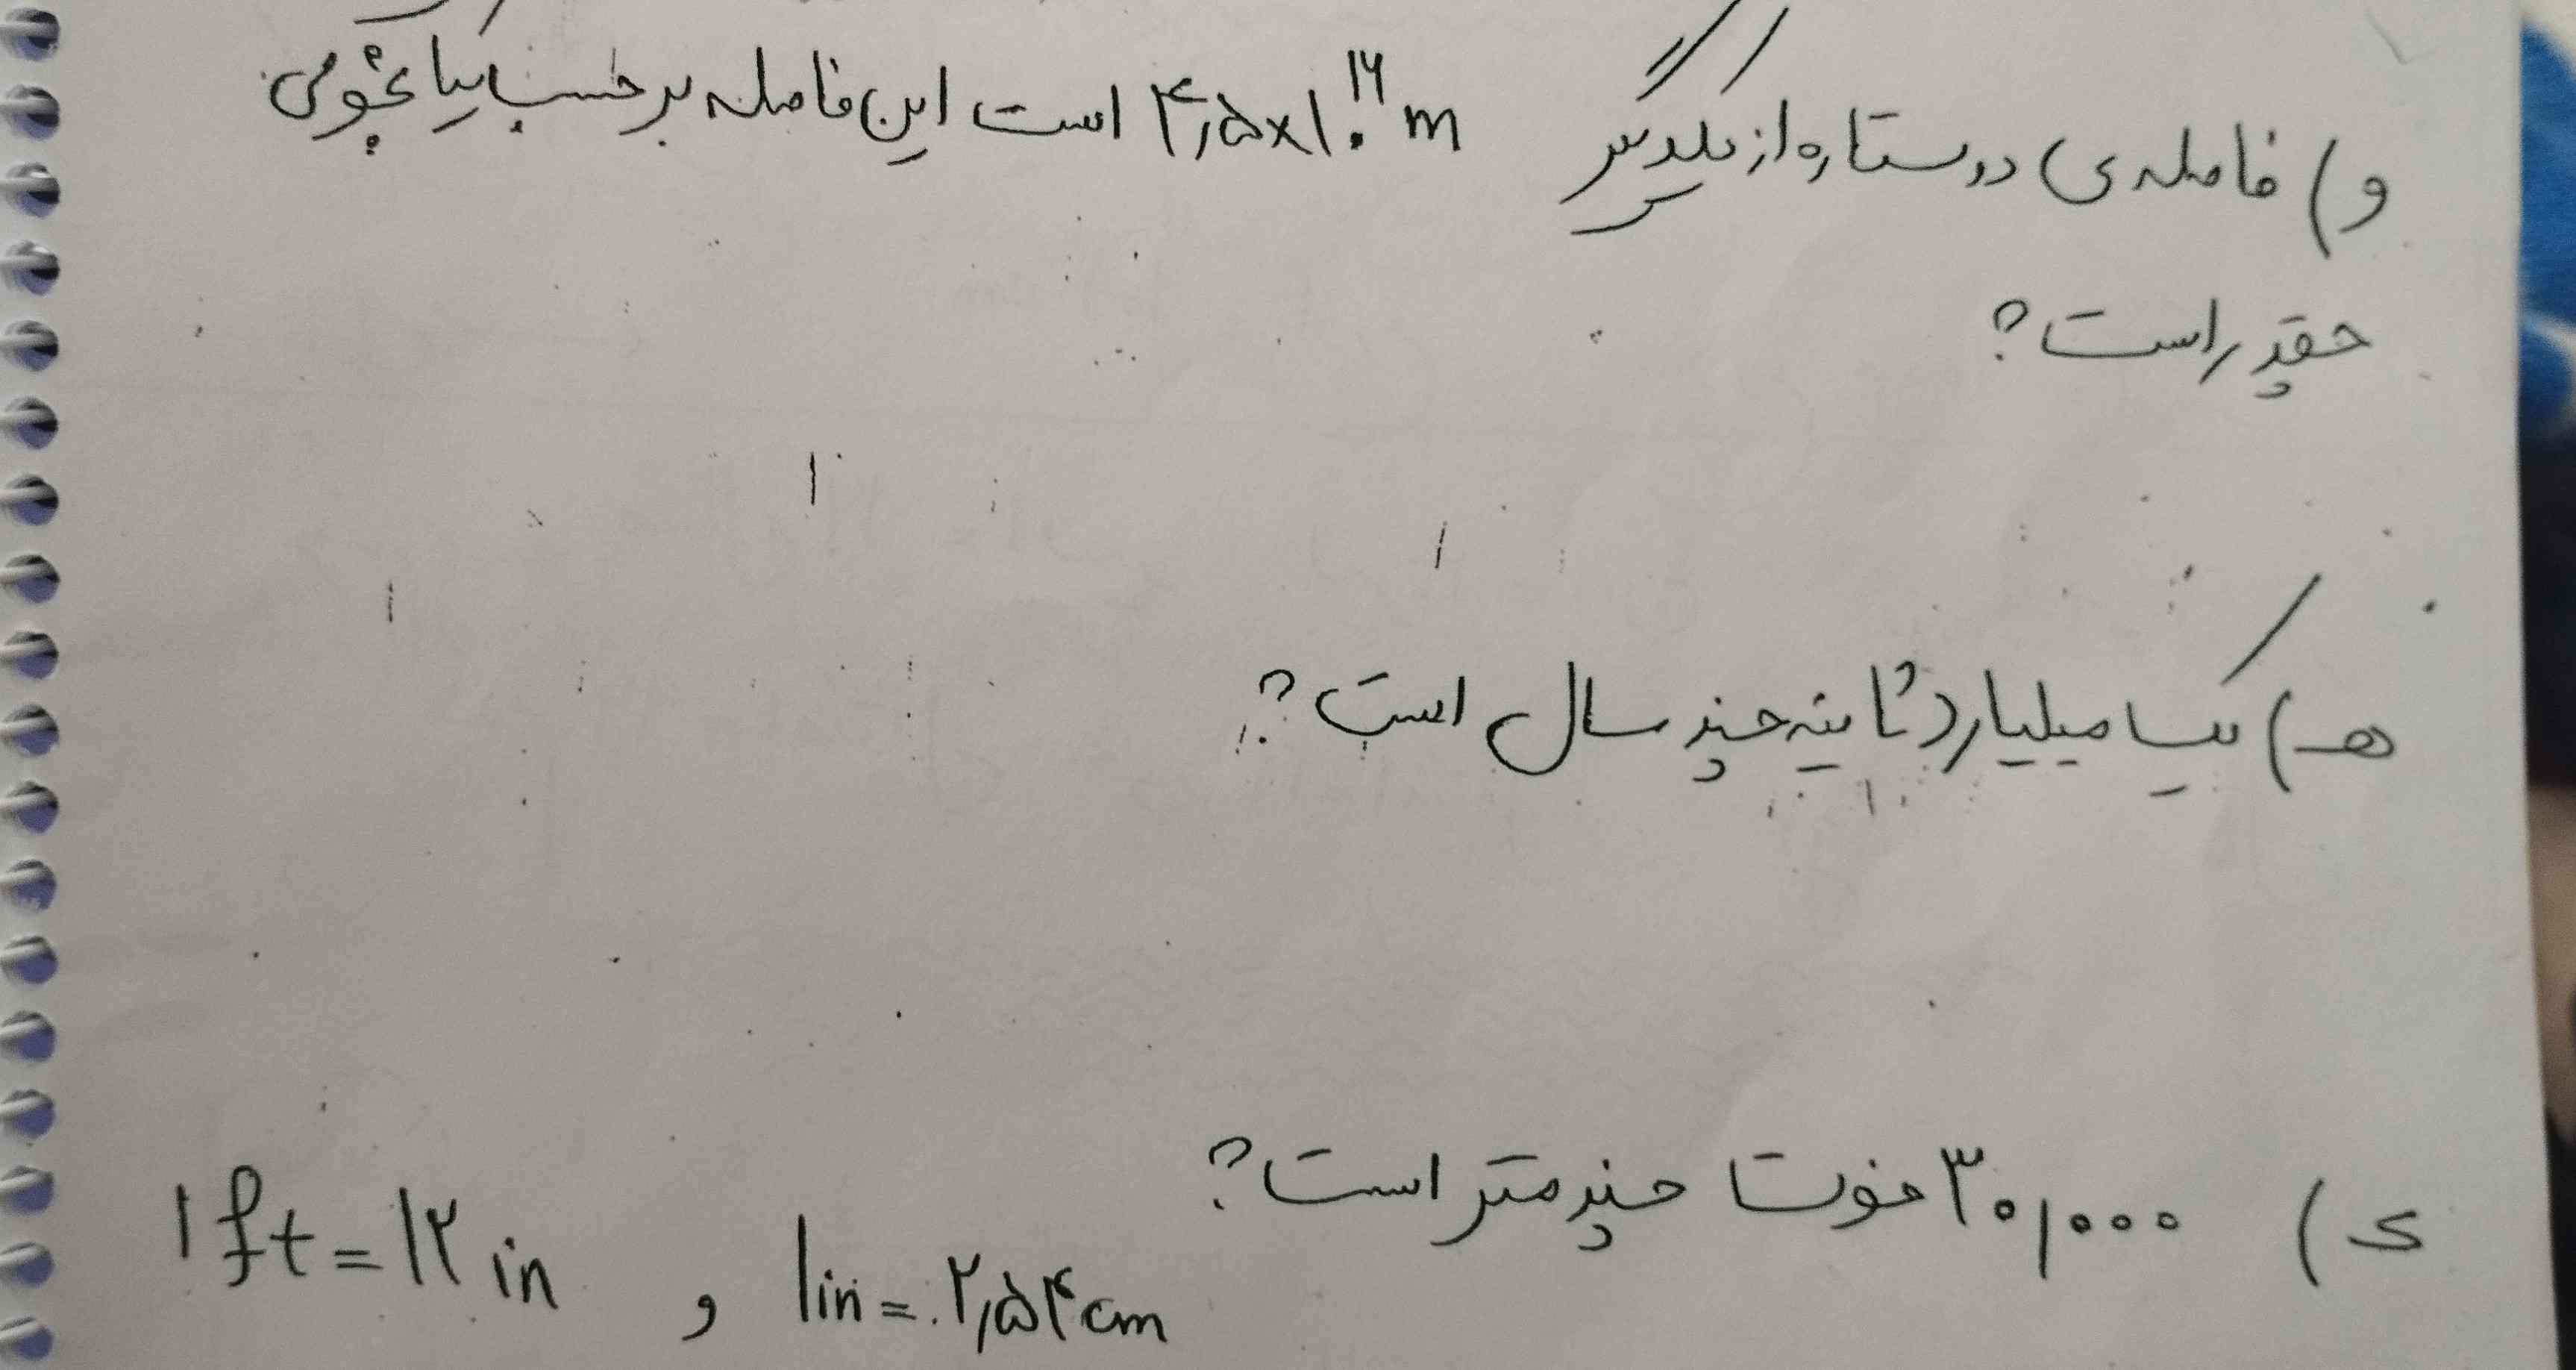 و) فاصله ی دو ستاره از یکدیگر ۴,۵×۱۰^۱۶ m است این فاصله بر حسب یکا نجومی
چقدر است؟
هـ) یک میلیارد ثانیه چند سال است؟
ی) ۳۰,۰۰۰ فوت چند متر است؟
۱ ft = ۱۲ in , ۱ in = ۲,۵۴ cm